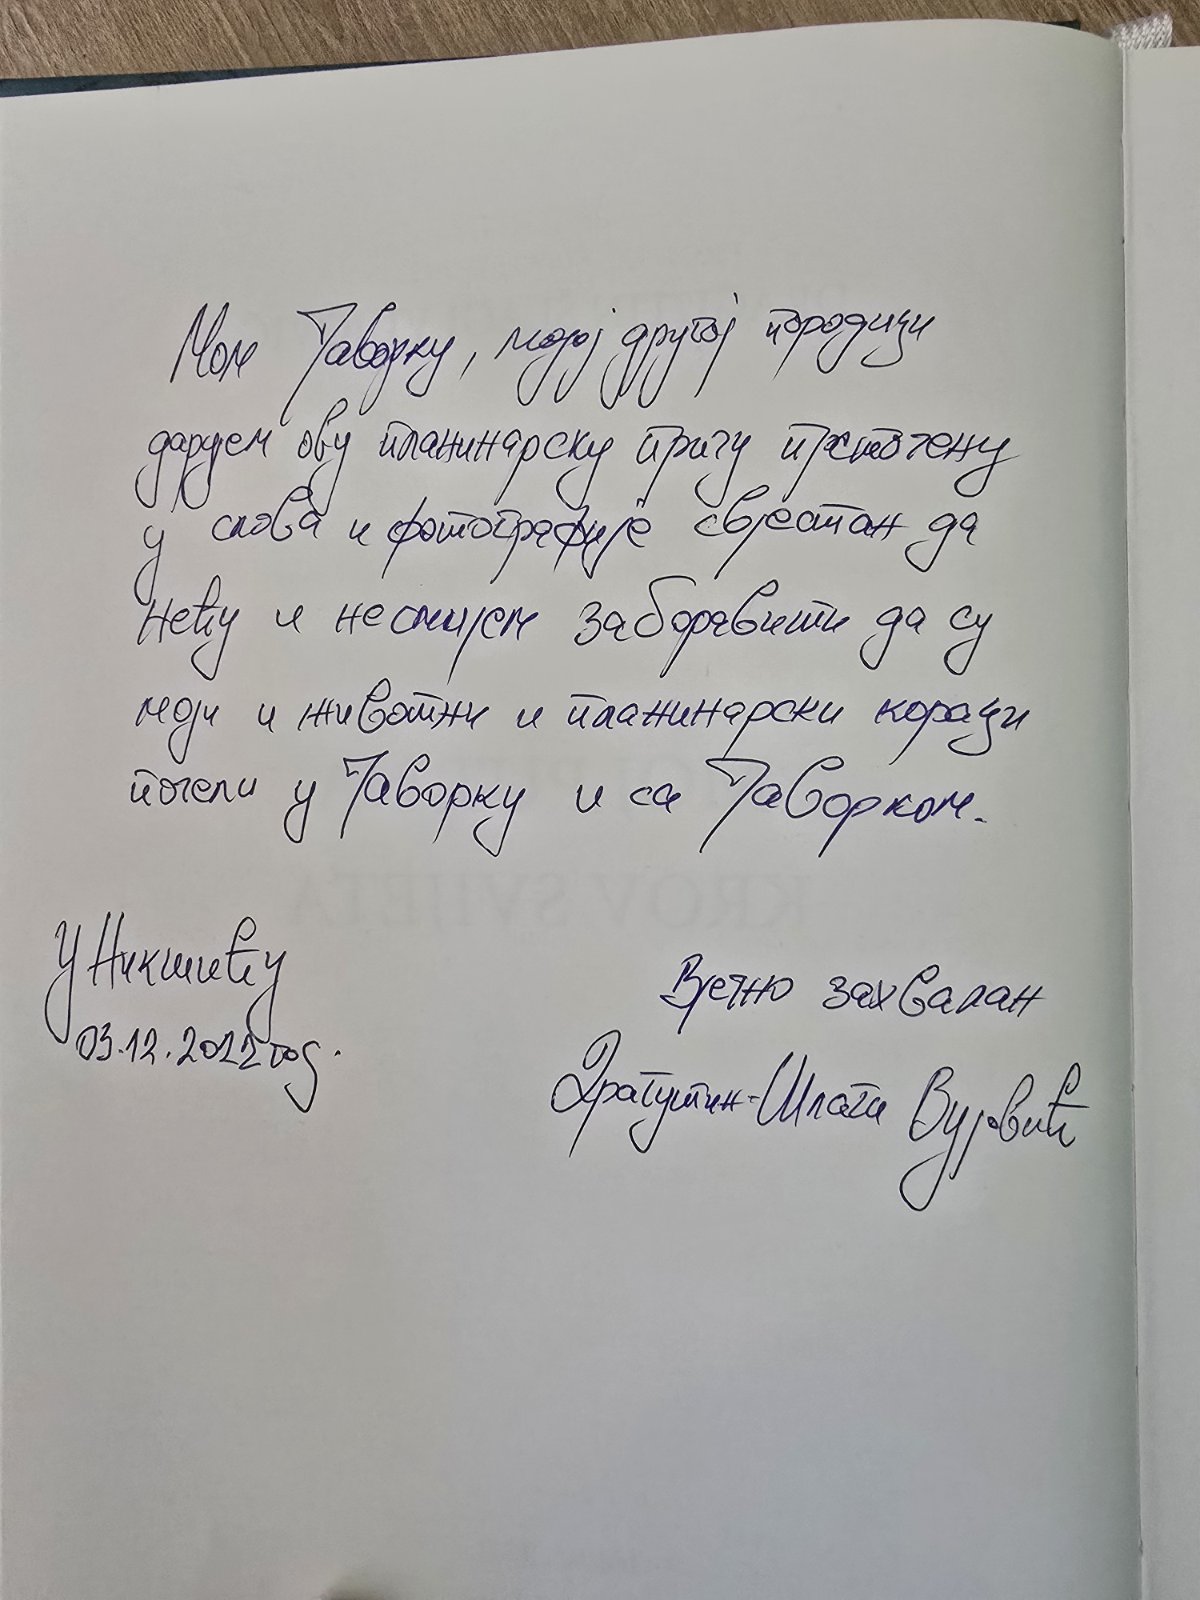 Мом Јаворку, мојој другој породици
дарујем ову планинарску причу преточену
у слова и фотографије свјестан да
нећу и не смијем заборавити да су
моји и животни и планинарски кораци
почели у Јаворку и са Јаворком.
У Никшићу
03.12.2022 год.
Вјечно захвалан
Драгутин-Шпаги Вујовић
KROV SVIJETA